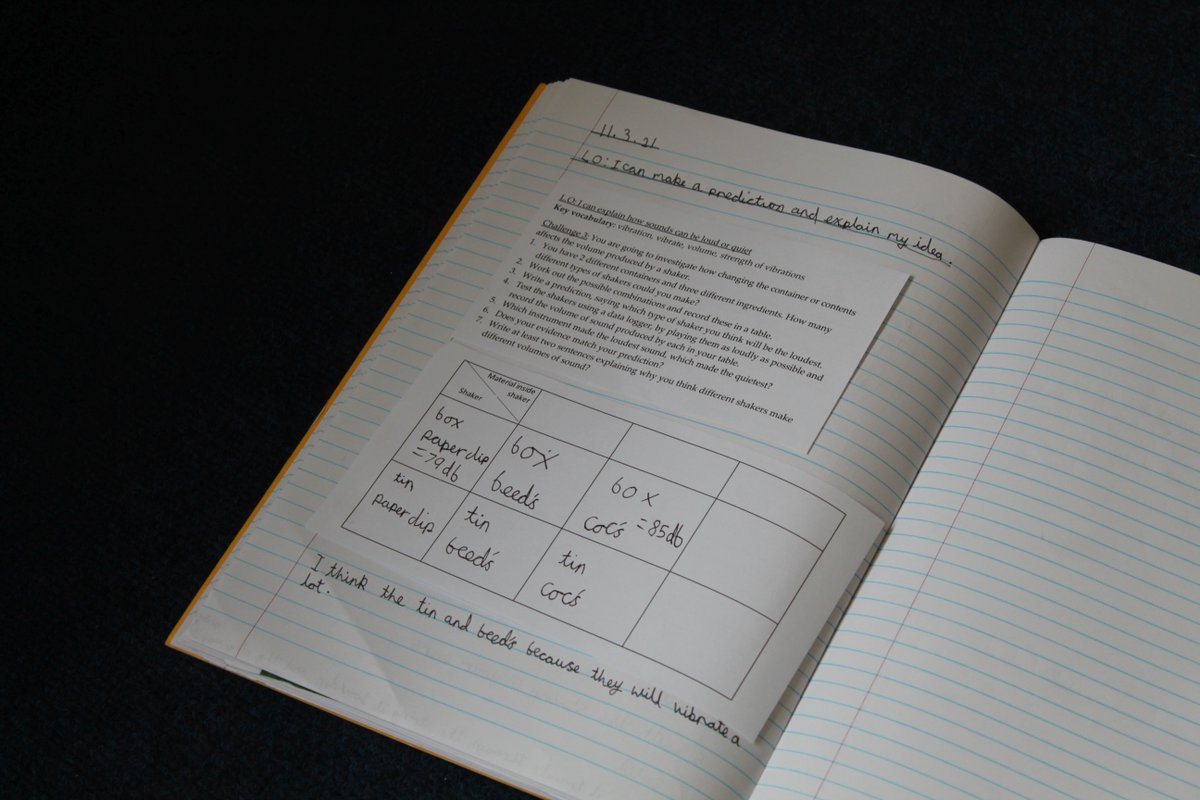 11.3.21
L.O: I can make a prediction and explain my idea.
L.O: I can explain how sounds can be loud or quiet
Key vocabulary: vibration, vibrate, volume, strength of vibrations
Challenge 3: You are going to investigate how changing the container or contents
affects the volume produced by a shaker.
1. You have 2 different containers and three different ingredients. How many
different types of shakers could you make?
2. Work out the possible combinations and record these in a table.
3. Write a prediction, saying which type of shaker you think will be the loudest.
4. Test the shakers using a data logger, by playing them as loudly as possible and
record the volume of sound produced by each in your table.
5. Which instrument made the loudest sound, which made the quietest?
6. Does your evidence match your prediction?
7. Write at least two sentences explaining why you think different shakers make
different volumes of sound?
Material inside
shaker
Shaker
box
paper clip
=79db
box
beed's
box
coc's =85db
tin
paper clip
tin
beed's
tin
coc's
I think the tin and beed's because they will vibrate a
lot.